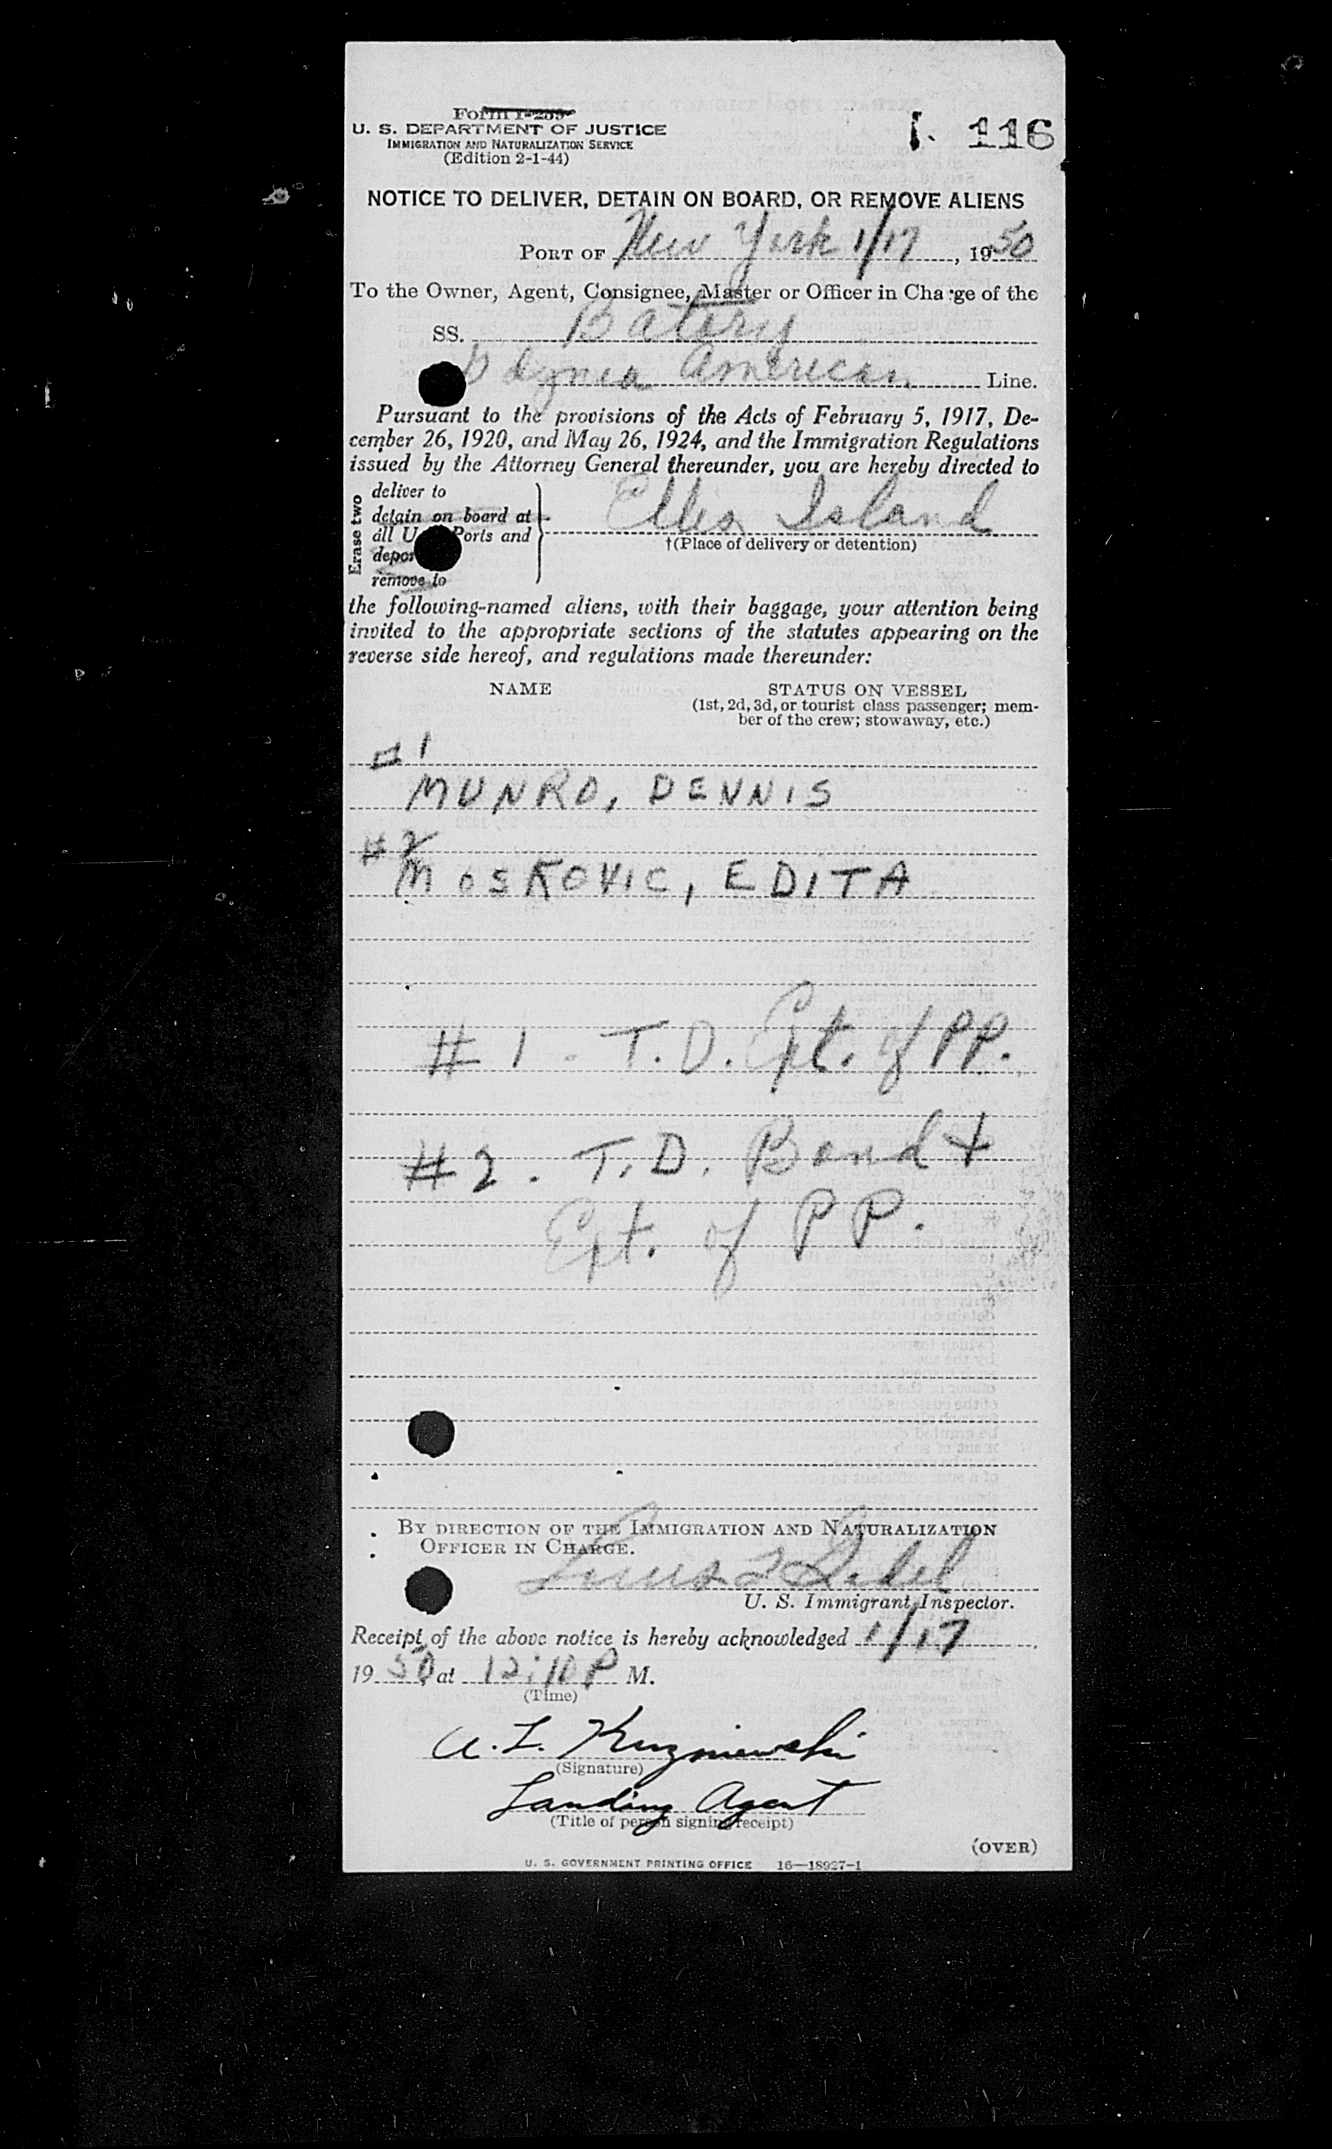 Form I-259
U. S. DEPARTMENT OF JUSTICE
IMMIGRATION AND NATURALIZATION SERVICE
(Edition 2-1-44)
I. 116
NOTICE TO DELIVER, DETAIN ON BOARD, OR REMOVE ALIENS
PORT OF New York 1/17, 1950
To the Owner, Agent, Consignee, Master or Officer in Charge of the
SS. Batory
Gdynia American Line.
Pursuant to the provisions of the Acts of February 5, 1917, De-
cember 26, 1920, and May 26, 1924, and the Immigration Regulations
issued by the Attorney General thereunder, you are hereby directed to
Erase two
deliver to
detain on board at
all U Ports and
depor
remove to
Ellis Island
†(Place of delivery or detention)
the following-named aliens, with their baggage, your attention being
invited to the appropriate sections of the statutes appearing on the
reverse side hereof, and regulations made thereunder:
NAME
STATUS ON VESSEL
(1st, 2d, 3d, or tourist class passenger; mem-
ber of the crew; stowaway, etc.)
#1
MUNRO, DENNIS
#2
MOSKOVIC, EDITA
#1. T.D. Ext. of PP.
#2. T.D. Bond +
Ext. of PP.
BY DIRECTION OF THE IMMIGRATION AND NATURALIZATION
OFFICER IN CHARGE.
Louis
U. S. Immigrant Inspector.
Receipt of the above notice is hereby acknowledged 1/17,
1950 at 12:10 P M.
(Time)
A. L. Kuzniewski
(Signature)
Landing Agent
(Title of person signing receipt)
(OVER)
U. S. GOVERNMENT PRINTING OFFICE 16—18927-1